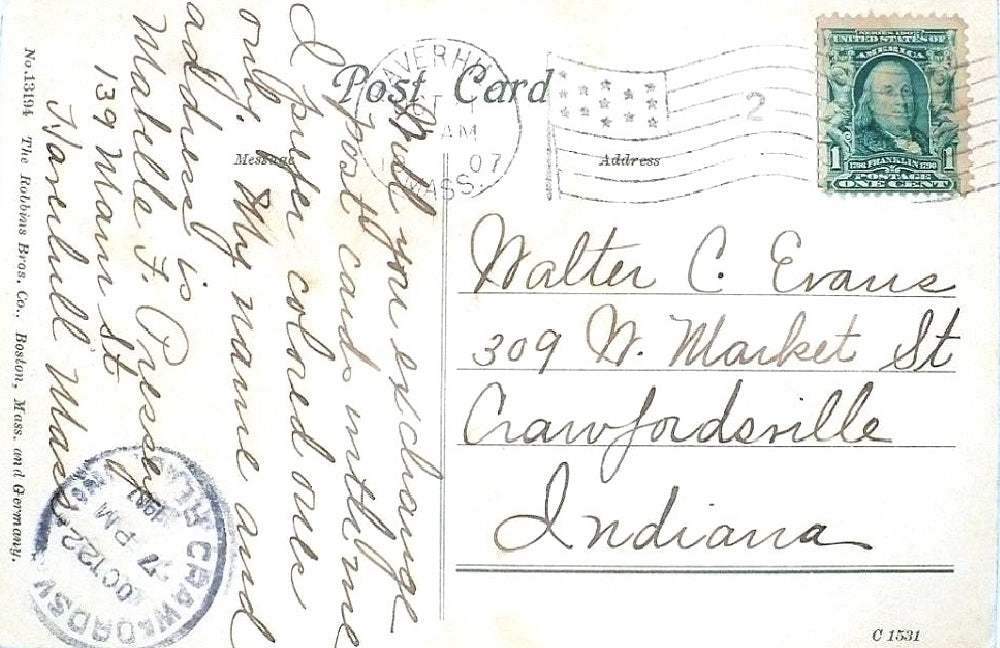 Post Card
Message
Address
HAVERHILL
AM
07
MASS.
2
SERIES 1902
UNITED STATES OF
AMERICA
1706 FRANKLIN 1790
1 POSTAGE 1
ONE CENT
Will you exchange
post cards with me
I prefer colored ones
only. My name and
address is
Mabelle F. Pressey
139 Main St
Haverhill Mass.
Walter C. Evans
309 W. Market St
Crawfordsville
Indiana
CRAWFORDSV
OCT 22
7 PM
1907
No. 13194 The Robbins Bros. Co., Boston, Mass. and Germany.
C 1531